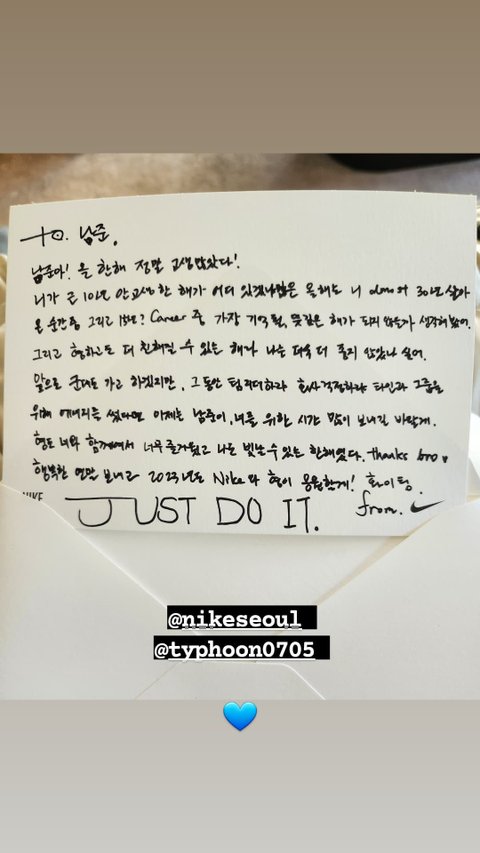 To. 남준.
남준아! 올 한해 정말 고생 많았다!
니가 근 10년 안 고생한 해가 어디 있겠냐만은 올해는 니 almost 30년 살아
온 순간 중 그리고 15년? Career 중 가장 기억될, 뜻깊은 해가 되지 않을까 생각해봤어.
그리고 형하고도 더 친해질 수 있는 해라 나는 더욱 더 좋지 않았나 싶어.
앞으로 군대도 가고 하겠지만, 그동안 팀 리더하랴 회사걱정하랴 타인과 그룹을
위해 에너지를 썼다면 이제는 남준이, 너를 위한 시간 많이 보내길 바랄게.
형도 너와 함께여서 너무 즐거웠고 나도 빛날 수 있는 한해였다. thanks bro
행복한 연말 보내라 2023년도 Nike와 형이 응원할게! 화이팅.
NIKE
JUST DO IT.
from.
@nikeseoul
@typhoon0705